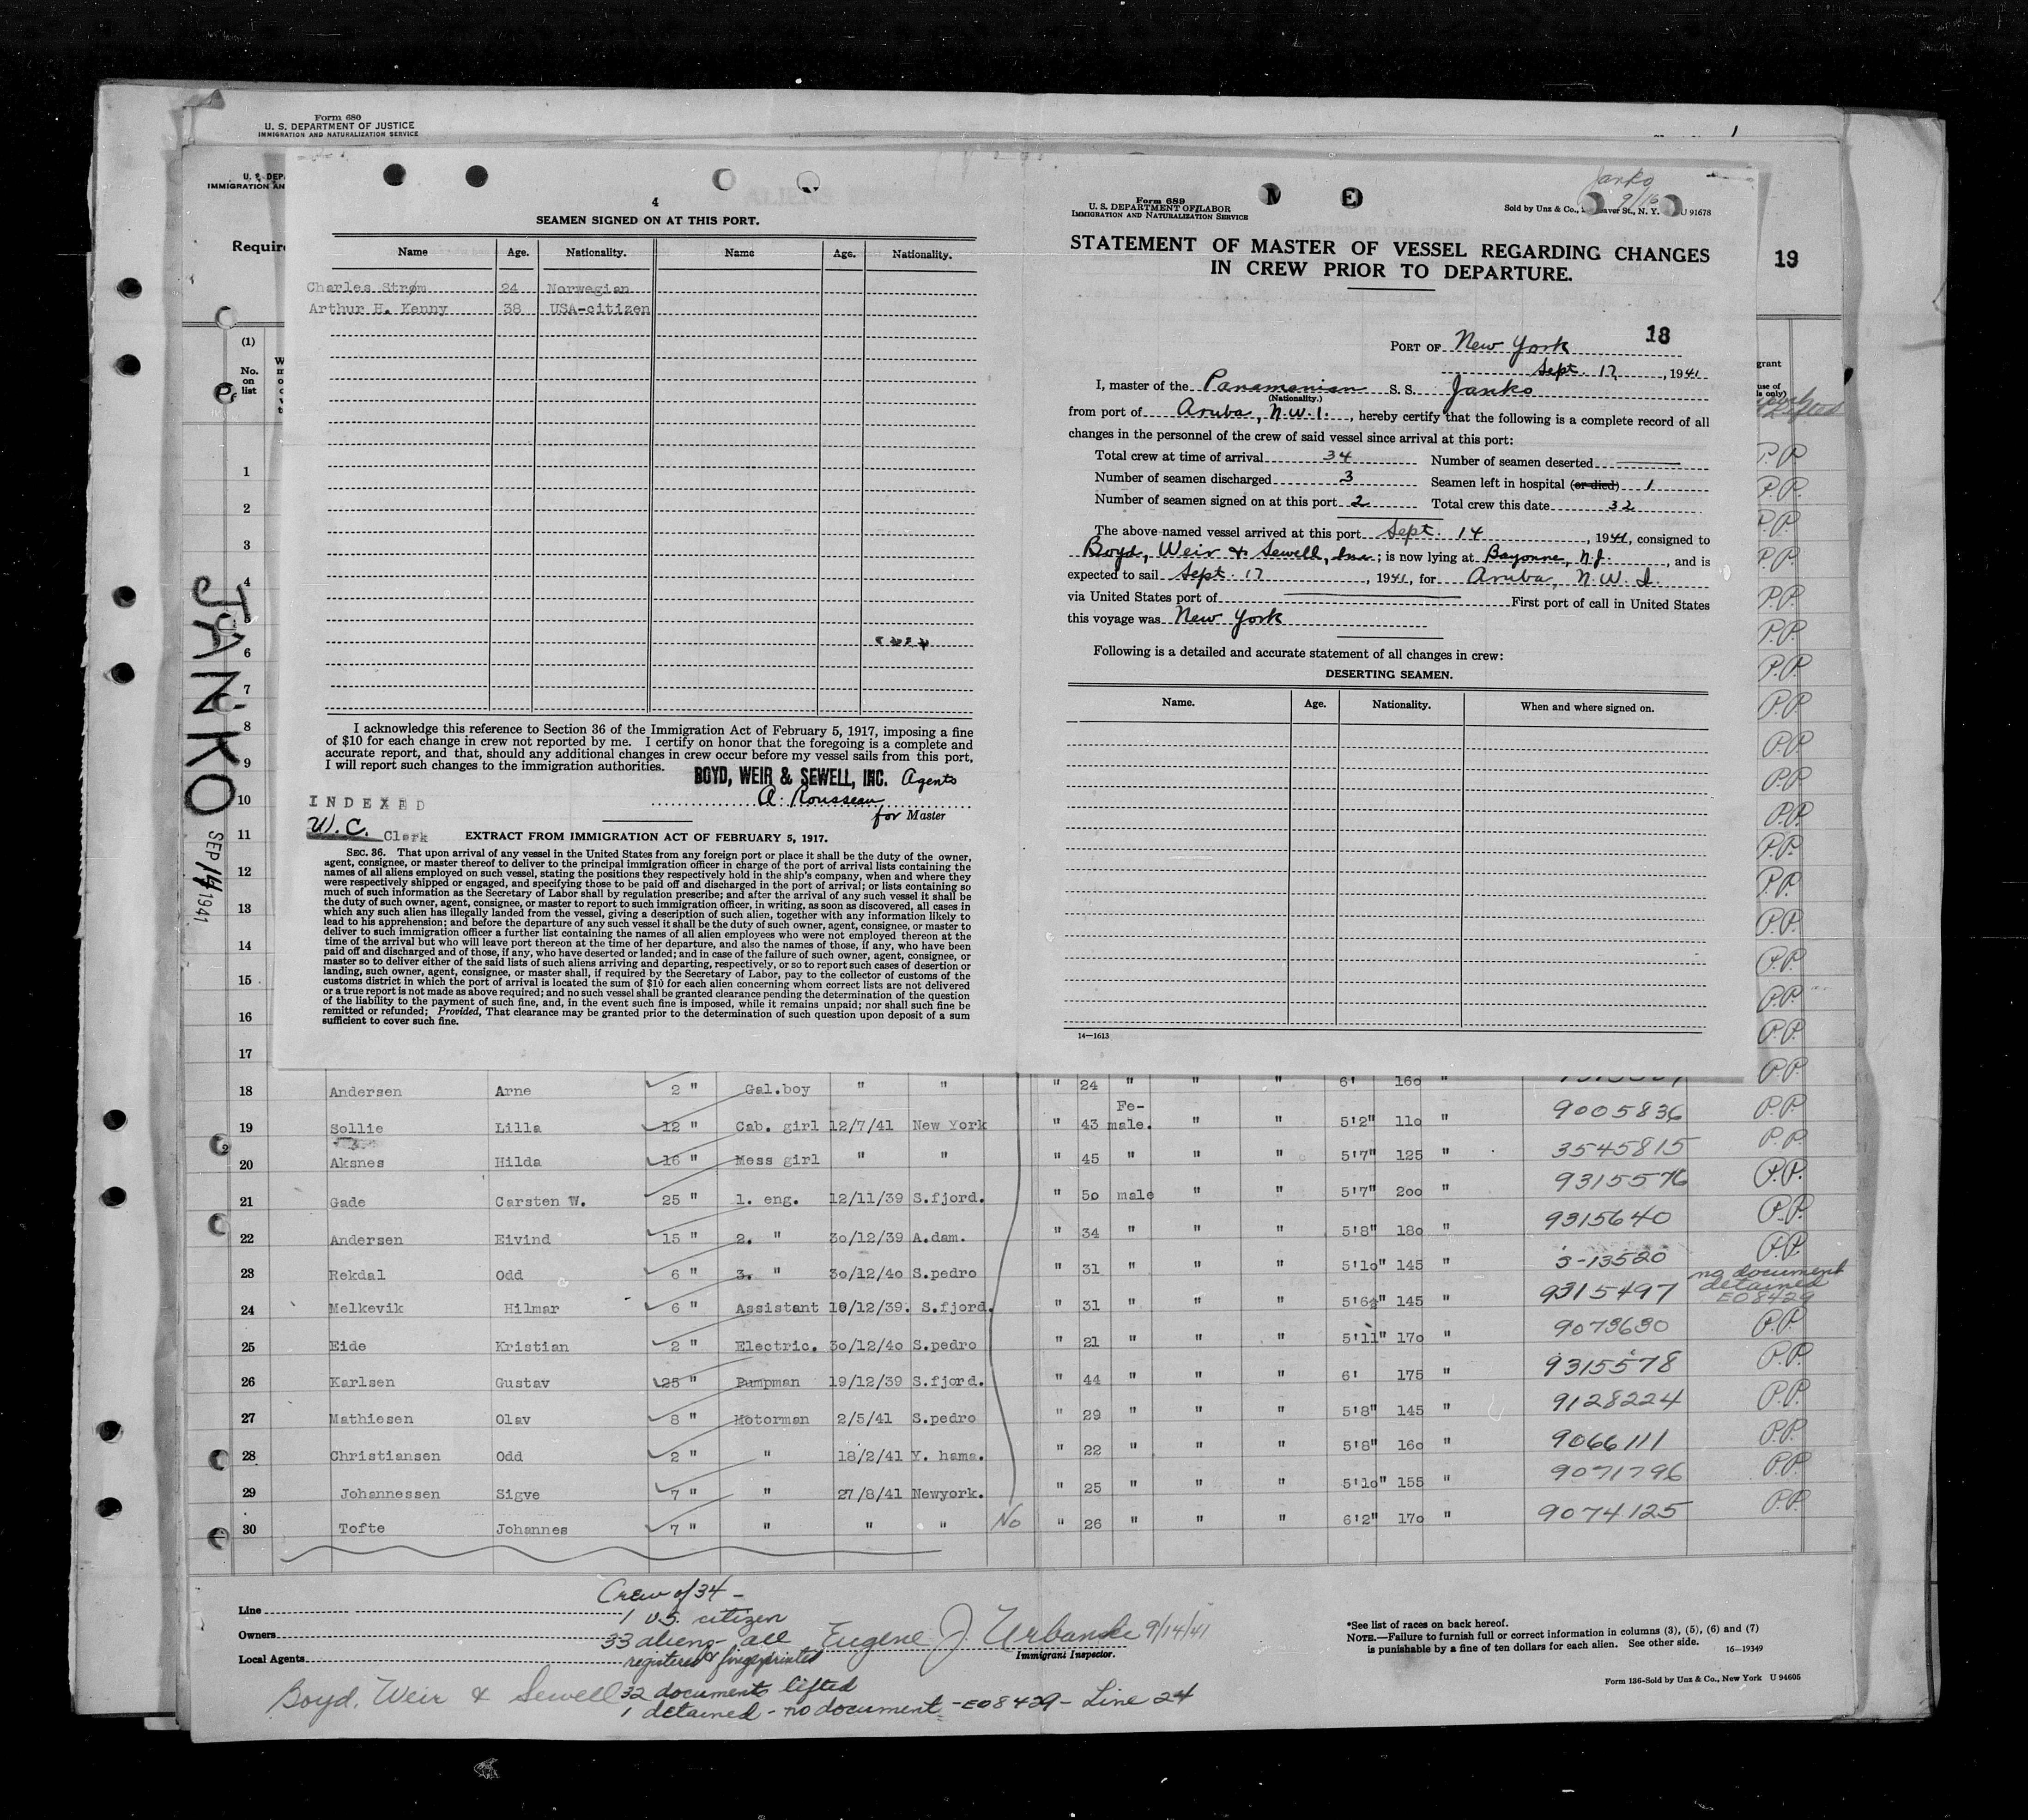 Form 680
U. S. DEPARTMENT OF JUSTICE
IMMIGRATION AND NATURALIZATION SERVICE
1
U. S. DEP
IMMIGRATION AN
Require
(1)
No.
on
list
JANKO
SEP 14 1941
4
SEAMEN SIGNED ON AT THIS PORT.
Name Age. Nationality. Name Age. Nationality.
Charles Strøm 24 Norwegian
Arthur H. Kenny 38 USA-citizen
I acknowledge this reference to Section 36 of the Immigration Act of February 5, 1917, imposing a fine
of $10 for each change in crew not reported by me. I certify on honor that the foregoing is a complete and
accurate report, and that, should any additional changes in crew occur before my vessel sails from this port,
I will report such changes to the immigration authorities.
BOYD, WEIR & SEWELL, INC. Agents
A. Rousseau
for Master
INDEXED
W. C. Clerk
EXTRACT FROM IMMIGRATION ACT OF FEBRUARY 5, 1917.
SEC. 36. That upon arrival of any vessel in the United States from any foreign port or place it shall be the duty of the owner,
agent, consignee, or master thereof to deliver to the principal immigration officer in charge of the port of arrival lists containing the
names of all aliens employed on such vessel, stating the positions they respectively hold in the ship's company, when and where they
were respectively shipped or engaged, and specifying those to be paid off and discharged in the port of arrival; or lists containing so
much of such information as the Secretary of Labor shall by regulation prescribe; and after the arrival of any such vessel it shall be
the duty of such owner, agent, consignee, or master to report to such immigration officer, in writing, as soon as discovered, all cases in
which any such alien has illegally landed from the vessel, giving a description of such alien, together with any information likely to
lead to his apprehension; and before the departure of any such vessel it shall be the duty of such owner, agent, consignee, or master to
deliver to such immigration officer a further list containing the names of all alien employees who were not employed thereon at the
time of the arrival but who will leave port thereon at the time of her departure, and also the names of those, if any, who have been
paid off and discharged and of those, if any, who have deserted or landed; and in case of the failure of such owner, agent, consignee, or
master so to deliver either of the said lists of such aliens arriving and departing, respectively, or so to report such cases of desertion or
landing, such owner, agent, consignee, or master shall, if required by the Secretary of Labor, pay to the collector of customs of the
customs district in which the port of arrival is located the sum of $10 for each alien concerning whom correct lists are not delivered
or a true report is not made as above required; and no such vessel shall be granted clearance pending the determination of the question
of the liability to the payment of such fine, and, in the event such fine is imposed, while it remains unpaid; nor shall such fine be
remitted or refunded; Provided, That clearance may be granted prior to the determination of such question upon deposit of a sum
sufficient to cover such fine.
Janko
9/13
Form 689
U. S. DEPARTMENT OF LABOR
IMMIGRATION AND NATURALIZATION SERVICE
M E
Sold by Unz & Co., aver St., N. Y. U 91678
STATEMENT OF MASTER OF VESSEL REGARDING CHANGES
IN CREW PRIOR TO DEPARTURE.
19
18
PORT OF New York
Sept. 17, 1941
I, master of the Panamanian S. S. Janko
(Nationality.)
from port of Aruba, N.W.I., hereby certify that the following is a complete record of all
changes in the personnel of the crew of said vessel since arrival at this port:
Total crew at time of arrival 34 Number of seamen deserted
Number of seamen discharged 3 Seamen left in hospital (or died) 1
Number of seamen signed on at this port 2 Total crew this date 32
The above-named vessel arrived at this port Sept. 14, 1941, consigned to
Boyd, Weir & Sewell, Inc; is now lying at Bayonne, N.J., and is
expected to sail Sept. 17, 1941, for Aruba, N. W. I.
via United States port of First port of call in United States
this voyage was New York
Following is a detailed and accurate statement of all changes in crew:
DESERTING SEAMEN.
Name. Age. Nationality. When and where signed on.
14—1613
grant
use of
ls only)
1 P.P.
2 P.P.
3 P.P.
4 P.P.
6 P.P.
7 P.P.
8 P.P.
9 P.P.
10 P.P.
11 P.P.
12 P.P.
13 P.P.
14 P.P.
15 P.P.
16 P.P.
17 P.P.
18 Andersen Arne 2 " Gal.boy " " " 24 " " " 6' 160 " P.P.
19 Sollie Lilla 12 " Cab. girl 12/7/41 New York " 43 Fe-male. " " 5'2" 110 " 9005836 P.P.
20 Aksnes Hilda 16 " Mess girl " " " 45 " " " 5'7" 125 " 3545815 P.P.
21 Gade Carsten W. 25 " 1. eng. 12/11/39 S.fjord. " 50 male " " 5'7" 200 " 9315576 P.P.
22 Andersen Eivind 15 " 2. " 30/12/39 A.dam. " 34 " " " 5'8" 180 " 9315640 P.P.
23 Rekdal Odd 6 " 3. " 30/12/40 S.pedro " 31 " " " 5'10" 145 " S-13520 P.P.
24 Melkevik Hilmar 6 " Assistant 10/12/39. S.fjord. " 31 " " " 5'6½" 145 " 9315497 no document detained E08429
25 Eide Kristian 2 " Electric. 30/12/40 S.pedro " 21 " " " 5'11" 170 " 9073630 P.P.
26 Karlsen Gustav 25 " Pumpman 19/12/39 S.fjord. " 44 " " " 6' 175 " 9315578 P.P.
27 Mathiesen Olav 8 " Motorman 2/5/41 S.pedro " 29 " " " 5'8" 145 " 9128224 P.P.
28 Christiansen Odd 2 " " 18/2/41 Y. hama. " 22 " " " 5'8" 160 " 9066111 P.P.
29 Johannessen Sigve 7 " " 27/8/41 Newyork. " 25 " " " 5'10" 155 " 9071796 P.P.
30 Tofte Johannes 7 " " " " No " 26 " " " 6'2" 170 " 9074125 P.P.
Crew of 34 -
Line 1 U.S. citizen
Owners 33 aliens - all Eugene J. Urbanski 9/14/41
Local Agents registered & fingerprinted Immigrant Inspector.
Boyd, Weir & Sewell 32 documents lifted
1 detained - no document - E08429 - Line 24
*See list of races on back hereof.
NOTE.—Failure to furnish full or correct information in columns (3), (5), (6) and (7)
is punishable by a fine of ten dollars for each alien. See other side. 16—19349
Form 136-Sold by Unz & Co., New York U 94605